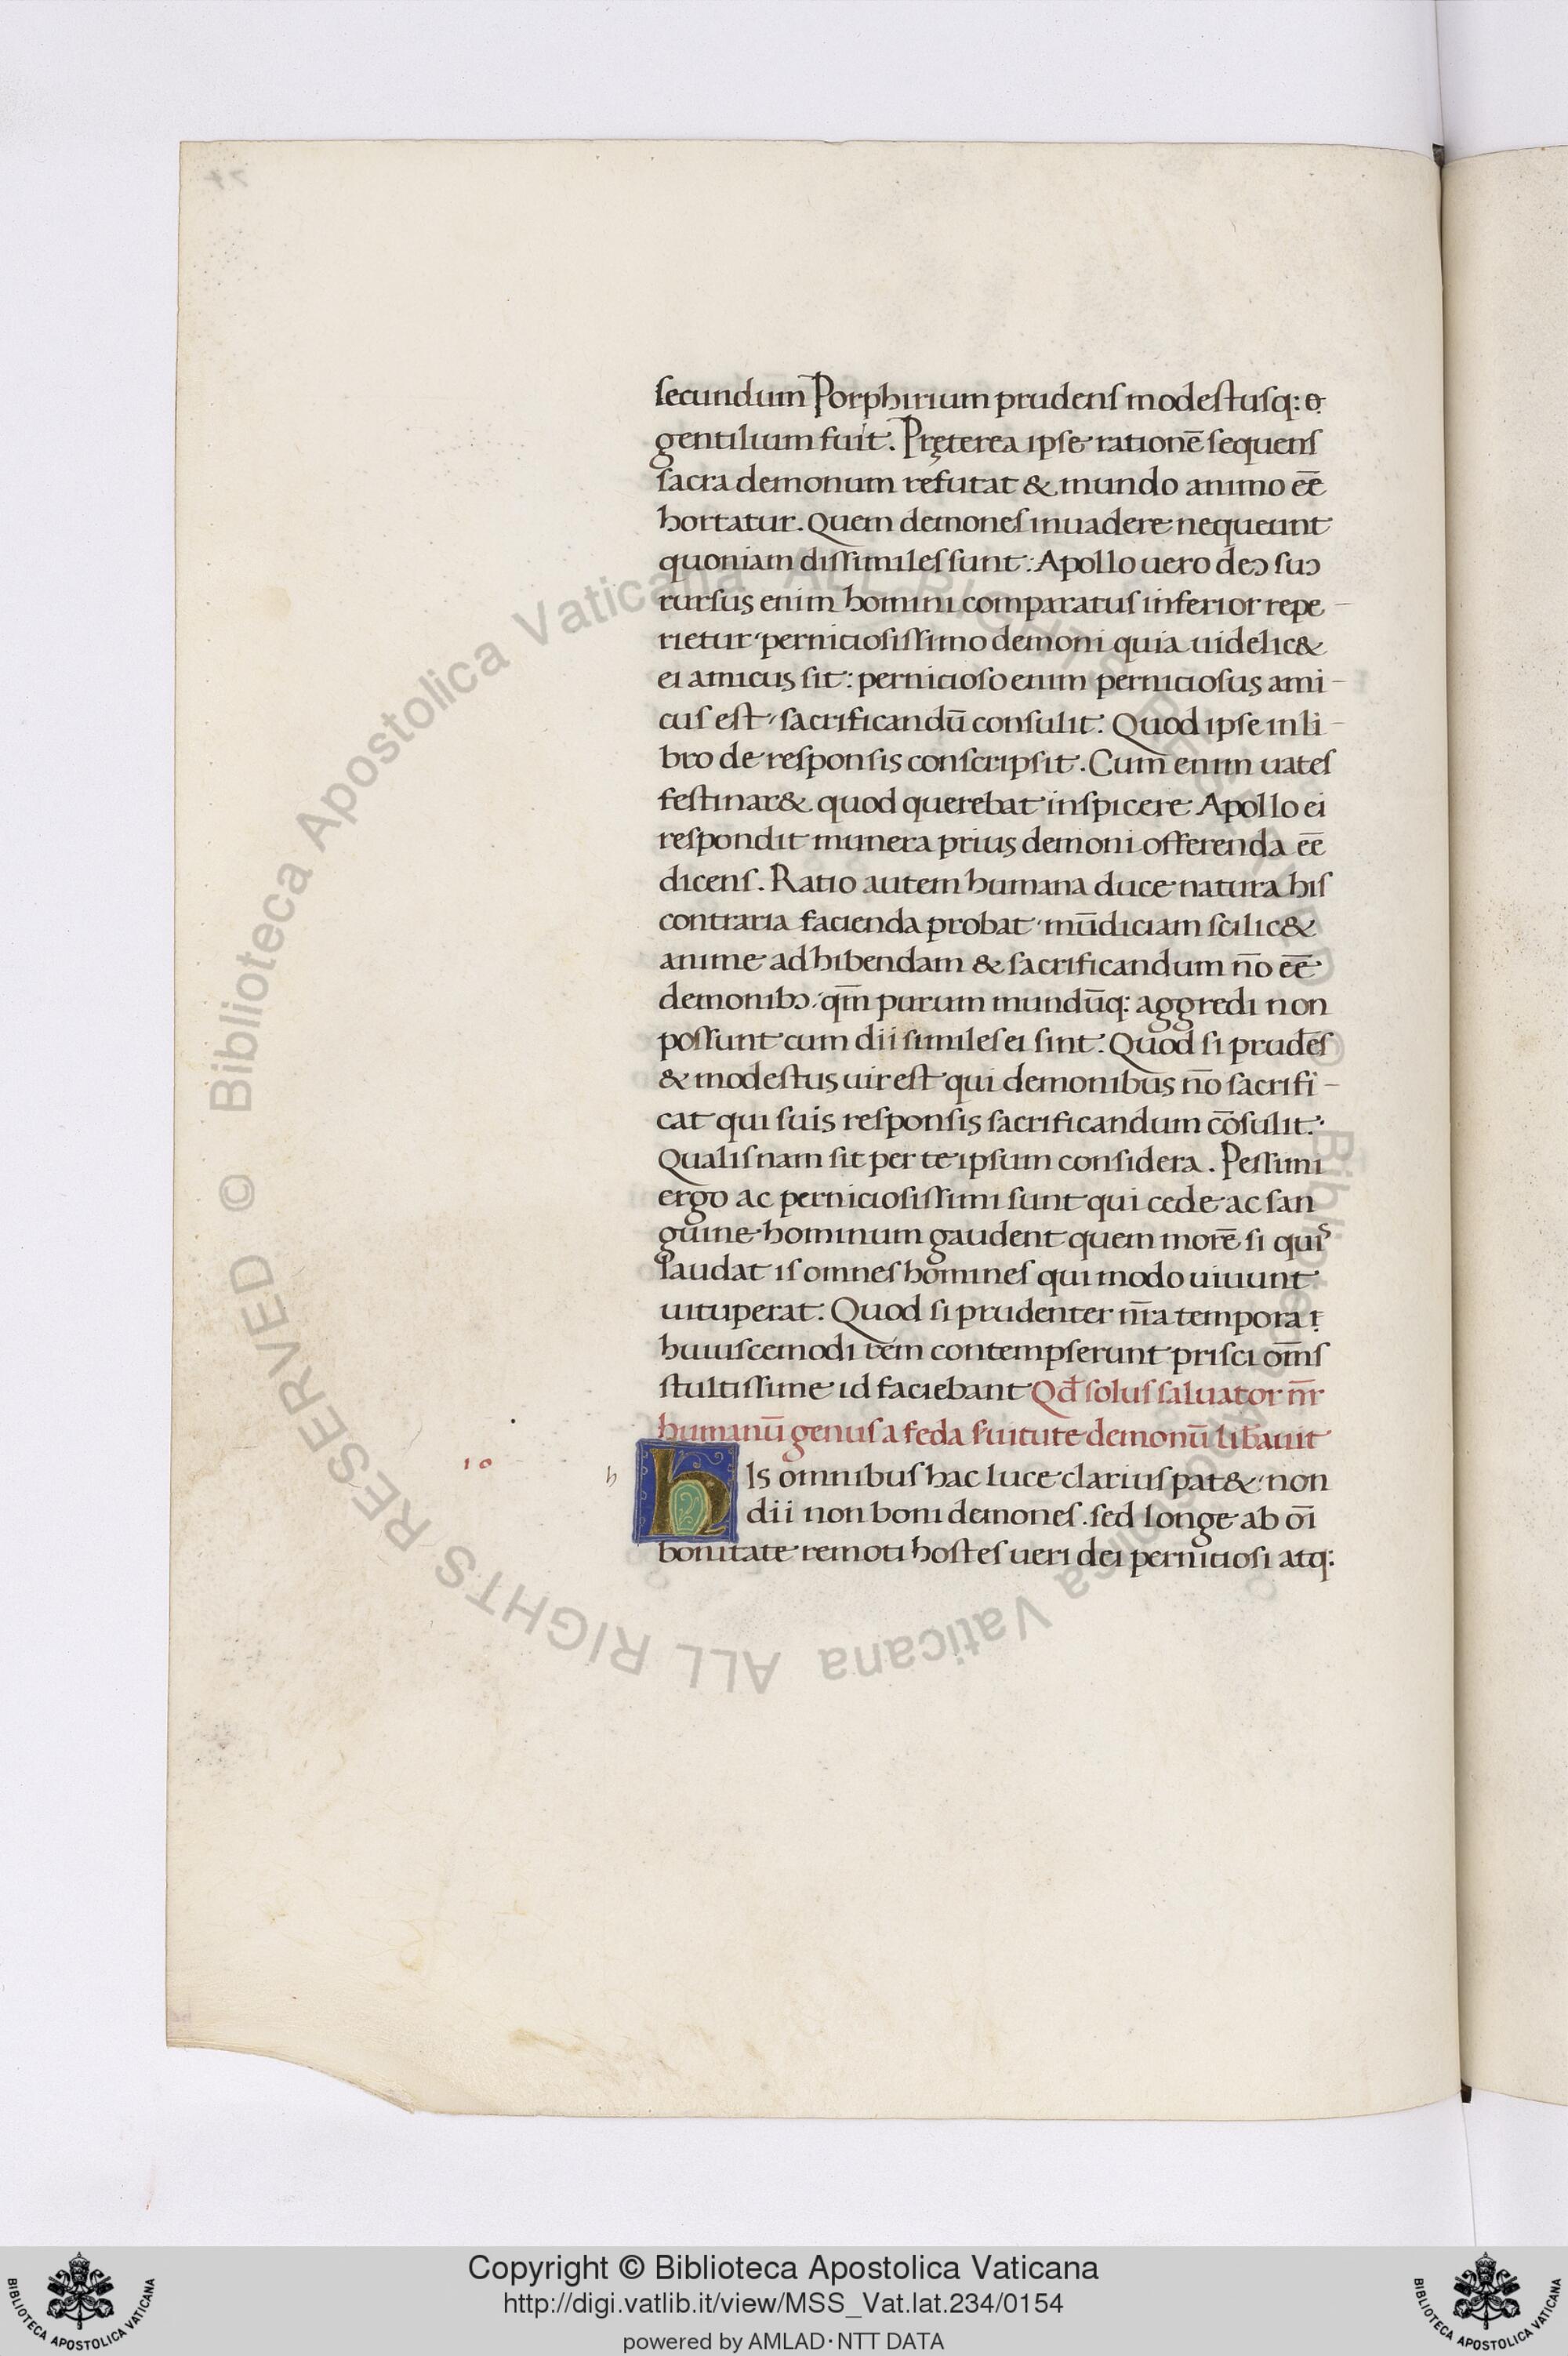 secundum Porphirium prudens modestusq: o
gentilium fuit. Pręterea ipse rationē sequens
sacra demonum refutat & mundo animo eē
hortatur. Quem demones inuadere nequeunt
quoniam dissimiles sunt: Apollo uero deɔ suɔ
rursus enim homini comparatus inferior repe-
rietur perniciosissimo demoni quia uidelic&
ei amicus sit: pernicioso enim perniciosus ami-
cus est sacrificandū consulit: Quod ipse in li-
bro de responsis conscripsit. Cum enim uates
festinar& quod querebat inspicere Apollo ei
respondit munera prius demoni offerenda eē
dicens. Ratio autem humana duce natura his
contraria facienda probat mūdiciam scilic&
anime adhibendam & sacrificandum nō eē
demonibɔ qm̄ purum mundūq: aggredi non
possunt cum dii similes ei sint: Quod si prudēs
& modestus uir est qui demonibus nō sacrifi-
cat qui suis responsis sacrificandum cōsulit:
Qualisnam sit per te ipsum considera. Pessimi
ergo ac perniciosissimi sunt qui cede ac san
guine hominum gaudent quem morē si quis
laudat is omnes homines qui modo uiuunt
uituperat: Quod si prudenter nr̄a tempora
huiuscemodi rem contempserunt prisci om̄s
stultissime id faciebant Qd̄ solus saluator nr̄
humanū genus a feda suitute demonū lib̄auit
10 h hIs omnibus hac luce clarius pat& non
dii non boni demones. sed longe ab oī
bonitate remoti hostes ueri dei perniciosi atq:
© Biblioteca Apostolica Vaticana ALL RIGHTS RESERVED
© Biblioteca Apostolica Vaticana ALL RIGHTS RESERVED
Copyright © Biblioteca Apostolica Vaticana
http://digi.vatlib.it/view/MSS_Vat.lat.234/0154
powered by AMLAD·NTT DATA
BIBLIOTECA APOSTOLICA VATICANA
BIBLIOTECA APOSTOLICA VATICANA